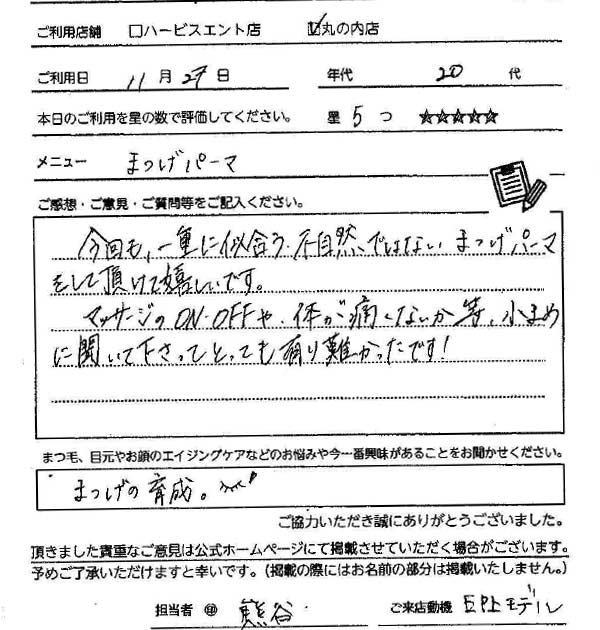 ご利用店舗 □ハービスエント店 ☑丸の内店
ご利用日 11月27日 年代 20代
本日のご利用を星の数で評価してください。 星5つ ★★★★★
メニュー まつげパーマ
ご感想・ご意見・ご質問等をご記入ください。
今回も、一重に似合う、不自然ではない まつげパーマ
をして頂けて嬉しいです。
マッサージのON・OFFや、体が痛くないか等、小まめ
に聞いて下さってとっても有り難かったです!
まつ毛、目元やお顔のエイジングケアなどのお悩みや今一番興味があることをお聞かせください。
まつげの育成。
ご協力いただき誠にありがとうございました。
頂きました貴重なご意見は公式ホームページにて掲載させていただく場合がございます。
予めご了承いただけますと幸いです。（掲載の際にはお名前の部分は掲載いたしません。）
担当者 熊谷 ご来店動機 モデル